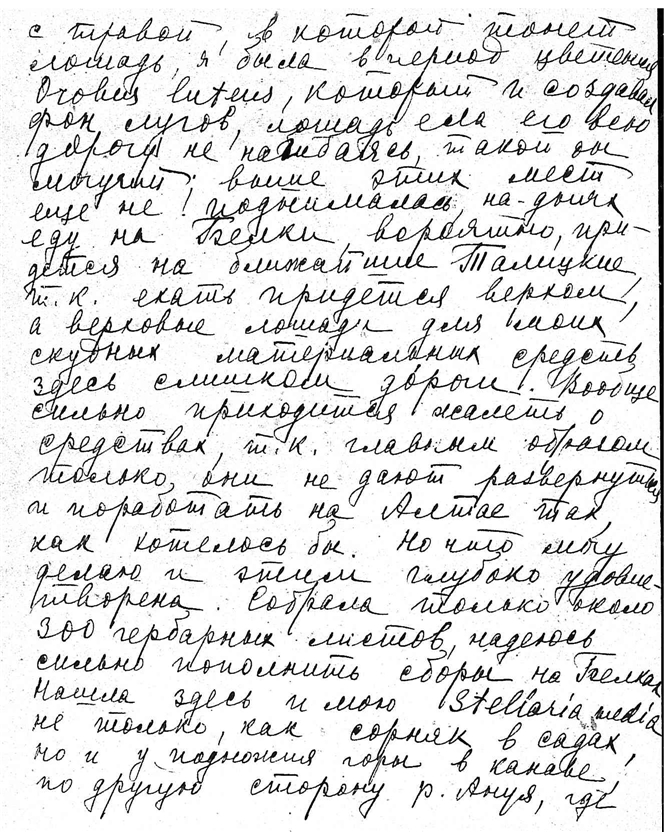 с травой, в которой тонет
лошадь, я была в период цветения
Orobus luteus, который и создавал
фон лугов, лошадь ела его всю
дорогу не нагибаясь, такой он
могучий; выше этих мест
еще не поднималась, на-днях
еду на Белки, вероятно, при-
дется на ближайшие Талицкие,
т.к. ехать придётся верхом,
а верховые лошади для моих
скудных материальных средств
здесь слишком дороги. Вообще
сильно приходится жалеть о
средствах, т.к. главным образом
только они не дают развернуться
и поработать на Алтае так,
как хотелось бы. Но что могу
делаю и этим глубоко удовле-
творена. Собрала только около
300 гербарных листов, надеюсь
сильно пополнить сборы на Белках
Нашла здесь и мою Stellaria media
не только, как сорняк в садах,
но и у подножия горы в канаве,
по другую сторону р. Ануя, где